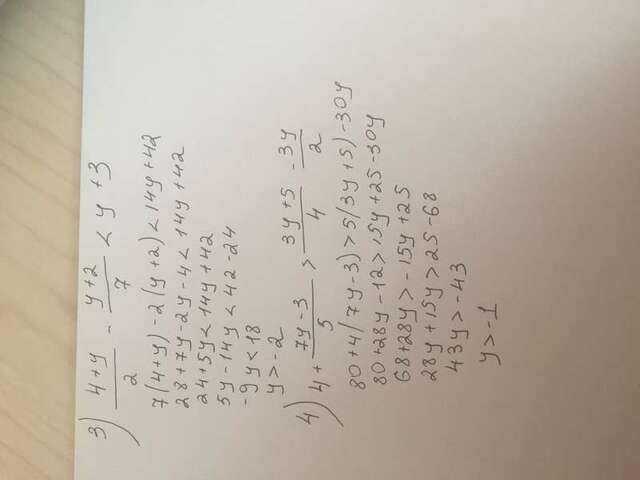 3) (4+y)/2 - (y+2)/7 < y+3
7(4+y)-2(y+2)<14y+42
28+7y-2y-4<14y+42
24+5y<14y+42
5y-14y<42-24
-9y<18
y>-2
4) 4+(7y-3)/5 > (3y+5)/4 - 3y/2
80+4(7y-3)>5(3y+5)-30y
80+28y-12>15y+25-30y
68+28y>-15y+25
28y+15y>25-68
43y>-43
y>-1